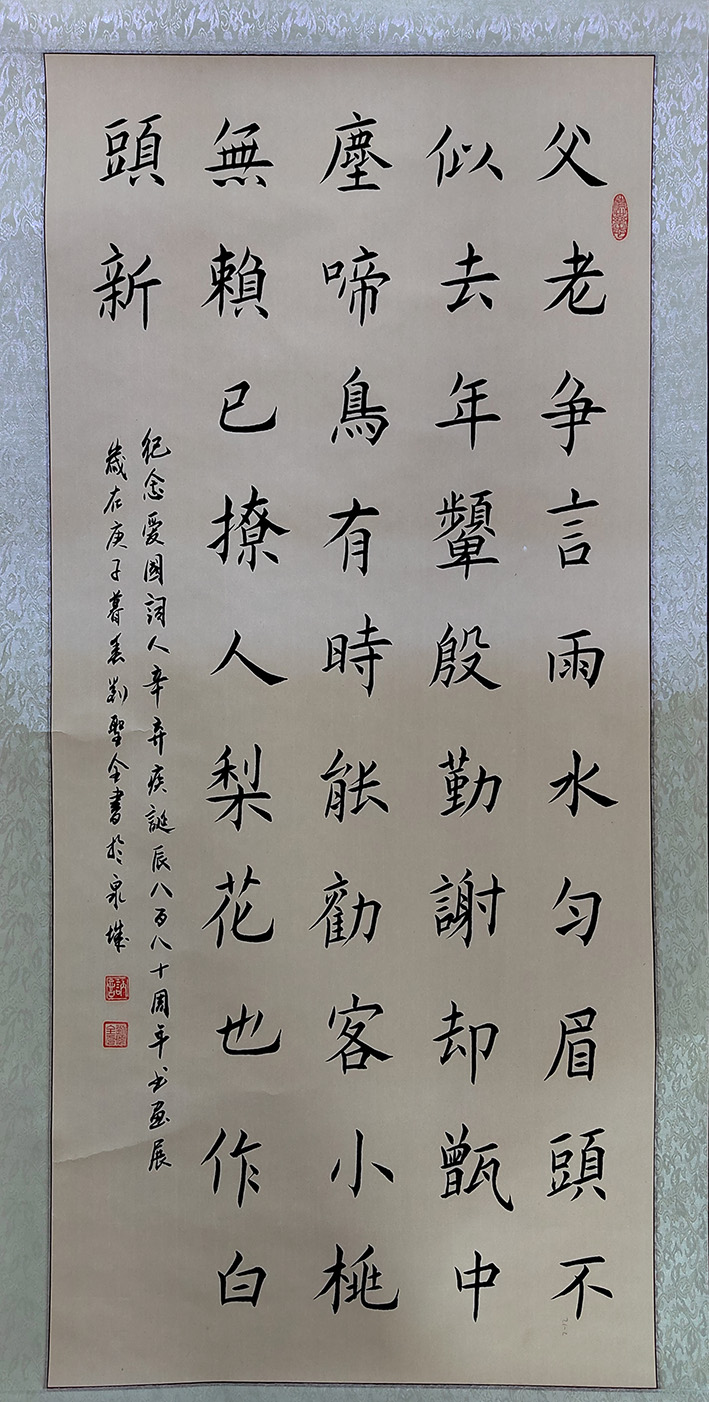 父老争言雨水匀眉頭不
似去年顰殷勤謝却甑中
塵啼鳥有時能勸客小桃
無賴已撩人梨花也作白
頭新
紀念愛國詞人辛弃疾誕辰八百八十周年书画展
歲在庚子暮春刘聖全書於泉城